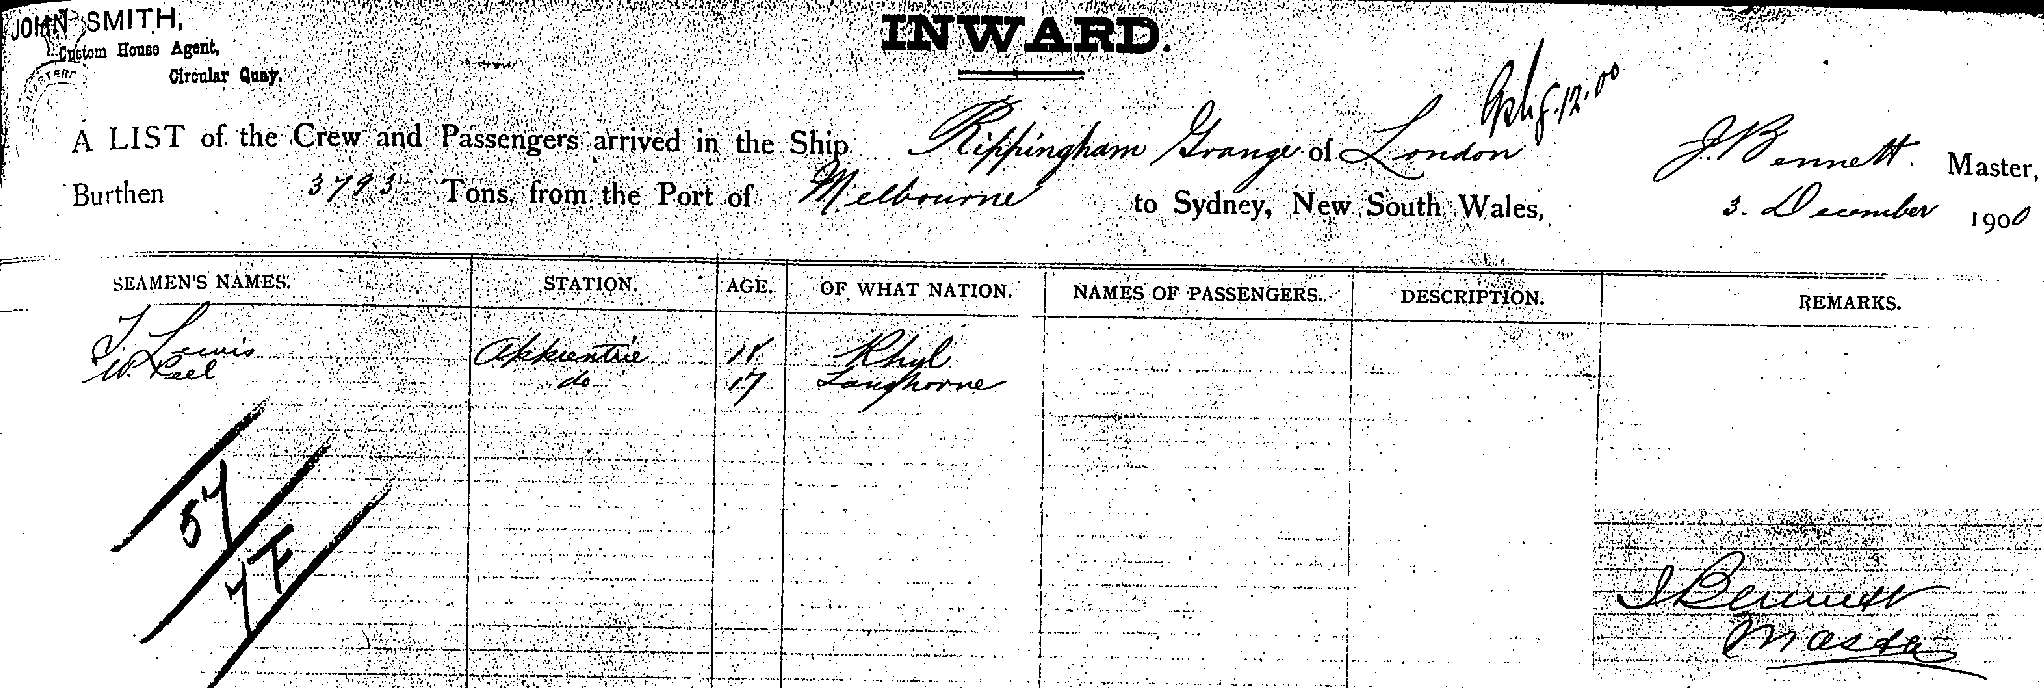 JOHN SMITH,
Custom House Agent,
Circular Quay.
INWARD.
12.00
A LIST of the Crew and Passengers arrived in the Ship Rippingham Grange of London J. Bennett. Master,
Burthen 3793 Tons from the Port of Melbourne to Sydney, New South Wales, 3. December 1900
SEAMEN'S NAMES. STATION. AGE. OF WHAT NATION. NAMES OF PASSENGERS. DESCRIPTION. REMARKS.
T Lewis Apprentice 18 Rhyl
W. Peel do 17 Langhorne
57
7F
J Bennett
Master